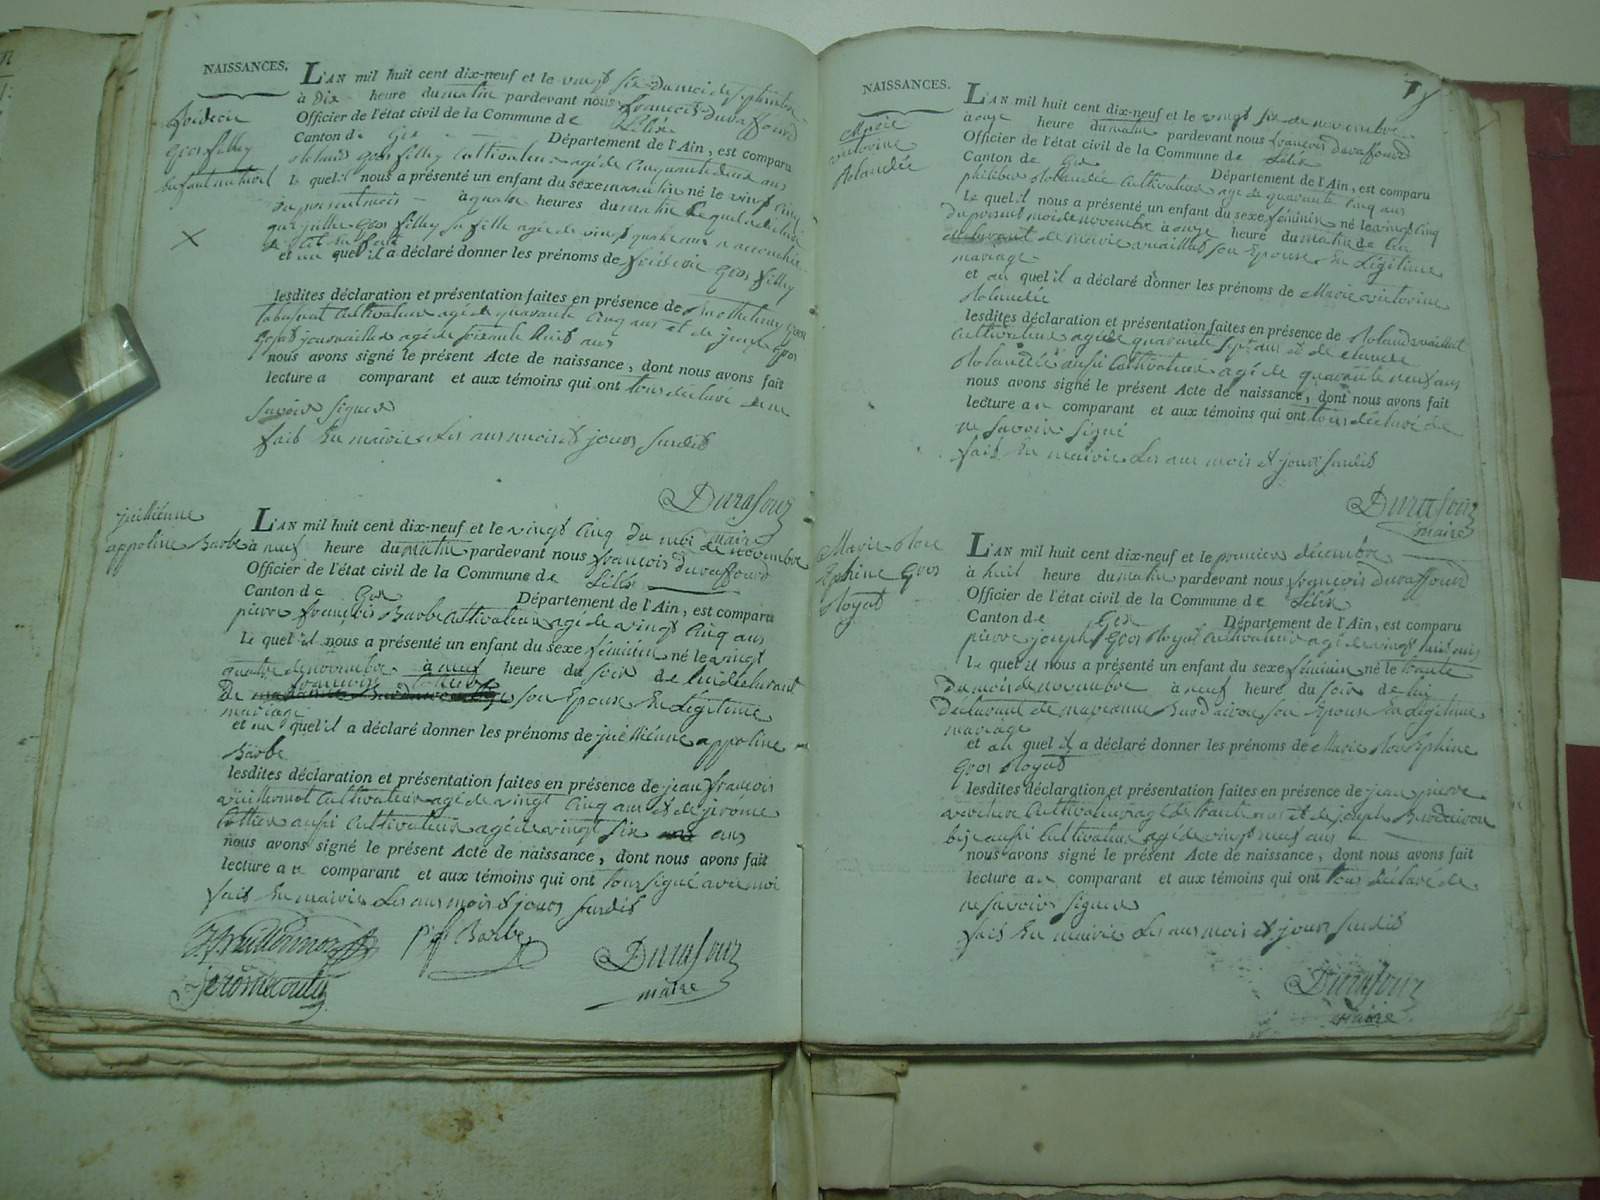 NAISSANCES.
L'AN mil huit cent dix-neuf et le vingt six du moi de septembre
à Dix heure du matin pardevant nous françois duraffourd
Officier de l'état civil de la Commune de Lélex
Canton de Gex Département de l'Ain, est comparu
Roland gros filley Cultivateur agé de Cinquante deux ans
Le quel il nous a présenté un enfant du sexe masculin né le vingt Cinq
du present mois à quatre heures du matin Lequel a déclaré
que gros filley sa fille agée de vingt quatre ans a accouchée
et au quel il a déclaré donner les prénoms de gros filley
lesdites déclaration et présentation faites en présence de gros
Cultivateur agé de quarante Cinq ans et de joseph gros
gros agé de soixante huit ans
nous avons signé le présent Acte de naissance, dont nous avons fait
lecture a comparant et aux témoins qui ont tous déclaré de ne
savoir signer
fait En mairie Les ans mois et jours susdit
Durafour
maire
gros filley
Enfant naturel
julliénne
appoline Barbe
L'AN mil huit cent dix-neuf et le vingt Cinq du moi de novembre
à neuf heure du matin pardevant nous françois duraffourd
Officier de l'état civil de la Commune de Lélex
Canton de Gex Département de l'Ain, est comparu
pierre françois Barbe Cultivateur agé de vingt Cinq ans
Le quel il nous a présenté un enfant du sexe féminin né le vingt
quatre de novembre à neuf heure du soir de lui déclarant
De son Epouse En Légitime
mariage
et au quel il a déclaré donner les prénoms de julliénne appoline
Barbe
lesdites déclaration et présentation faites en présence de jean françois
vuillermot Cultivateur agé de vingt Cinq ans et de jerome
Cottier aussi Cultivateur agé de vingt six ans
nous avons signé le présent Acte de naissance, dont nous avons fait
lecture au comparant et aux témoins qui ont tous signé avec moi
fait En mairie Les ans mois et jours susdit
P f Barbe
Durafour
maire
NAISSANCES.
Marie
victorine
Rolandée
L'AN mil huit cent dix-neuf et le vingt six de novembre
à onze heure du matin pardevant nous françois duraffourd
Officier de l'état civil de la Commune de Lélex
Canton de Gex Département de l'Ain, est comparu
philiber Rolandée Cultivateur agé de quarante Cinq ans
Le quel il nous a présenté un enfant du sexe féminin né le vingt Cinq
du present moi de novembre à onze heure du matin de lui
de marie vuaillat son Epouse En Légitime
mariage
et au quel il a déclaré donner les prénoms de Marie victorine
Rolandée
lesdites déclaration et présentation faites en présence de Roland vuaillat
Cultivateur agé de quarante sept ans et de claude
Rolandée aussi Cultivateur agé de quarante neuf ans
nous avons signé le présent Acte de naissance, dont nous avons fait
lecture au comparant et aux témoins qui ont tous déclaré de
ne savoir signé
fait En mairie Les ans mois et jours susdit
Durafour
maire
Marie Rose
Ephine Gros
Royat
L'AN mil huit cent dix-neuf et le premier décembre
à huit heure du matin pardevant nous françois duraffourd
Officier de l'état civil de la Commune de Lélex
Canton de Gex Département de l'Ain, est comparu
pierre joseph Gros Royat Cultivateur agé de vingt huit ans
Le quel il nous a présenté un enfant du sexe féminin né le trente
du mois de novembre à neuf heure du soir de lui
déclarant de marianne son Epouse En Légitime
mariage
et au quel il a déclaré donner les prénoms de Marie Rose Ephine
Gros Royat
lesdites déclaration et présentation faites en présence de jean pierre
Cultivateur agé de trente ans et de joseph
aussi Cultivateur agé de vingt neuf ans
nous avons signé le présent Acte de naissance, dont nous avons fait
lecture au comparant et aux témoins qui ont tous déclaré de
ne savoir signer
fait En mairie Les ans mois et jours susdit
Durafour
maire